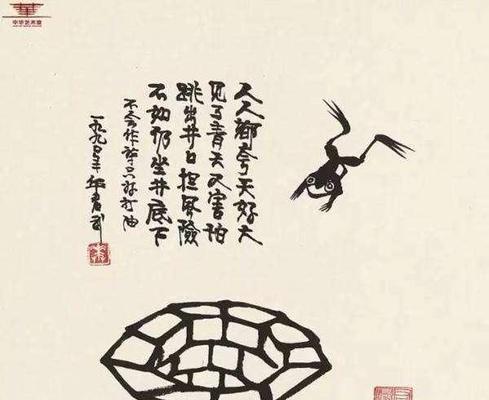 人人都夸天好大
见了青天又害怕
跳出井口担风險
不如仍坐井底下
不会作诗只好打油
一九九〇年 华君武